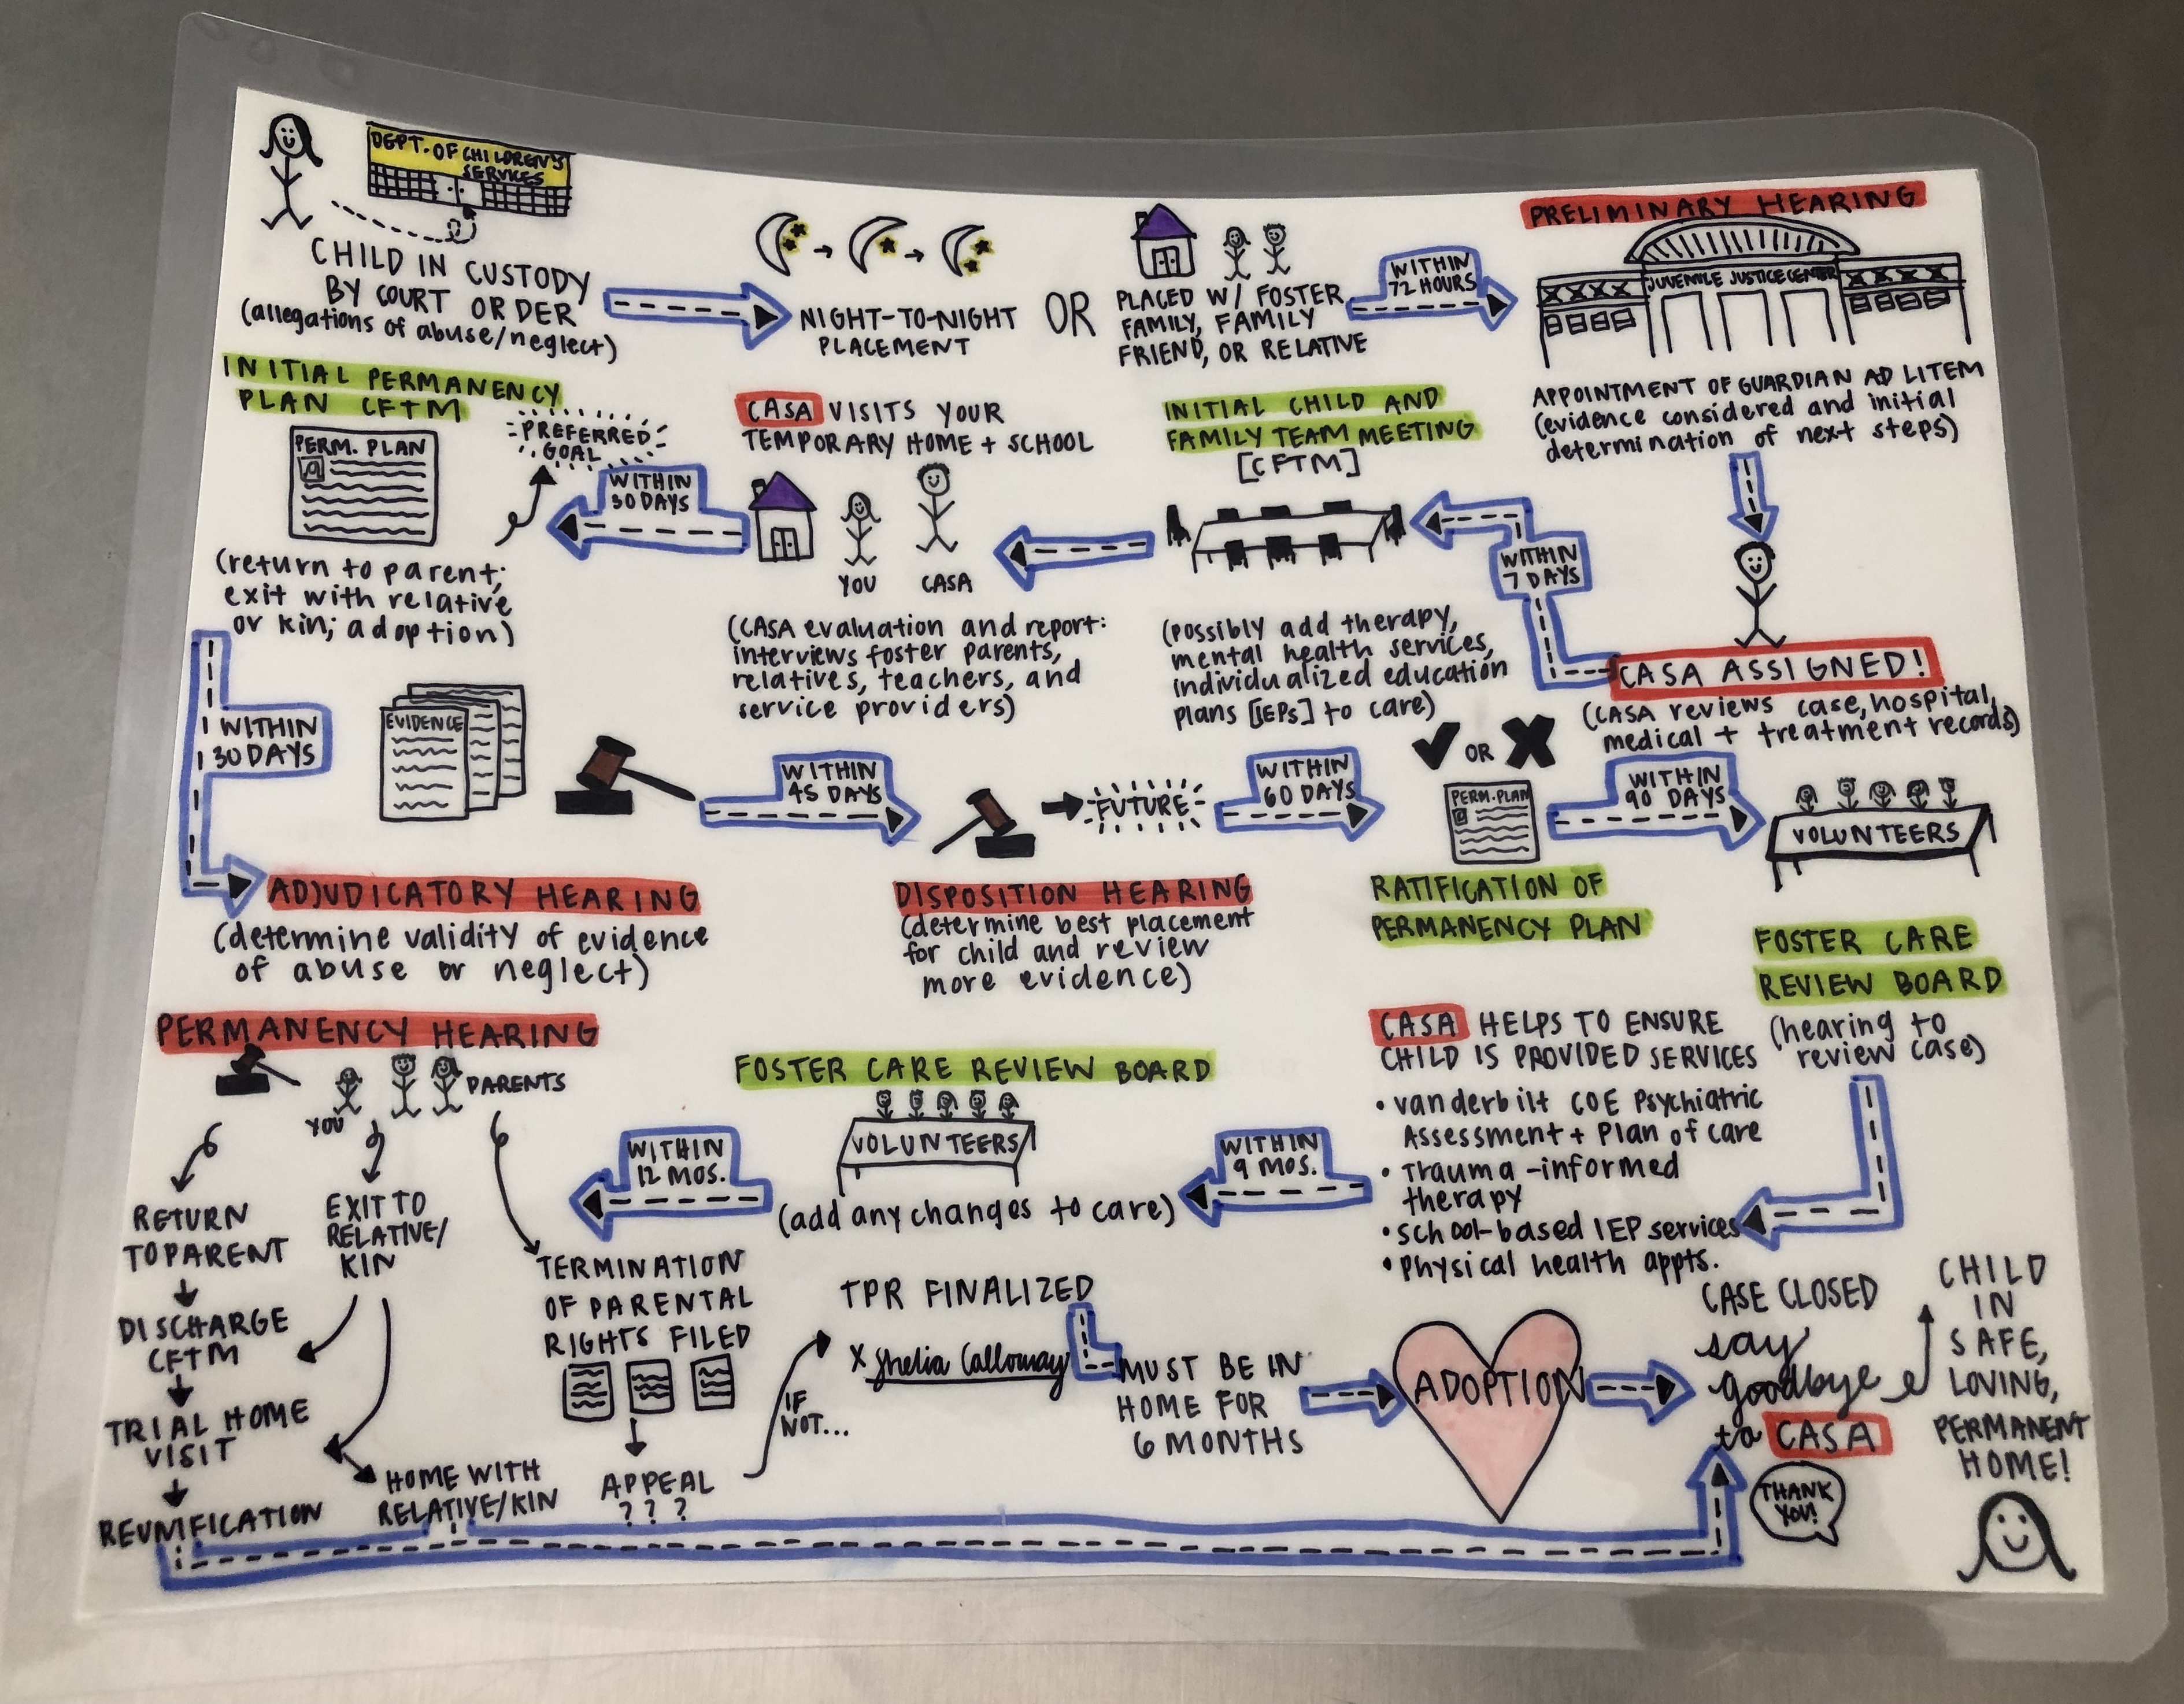 DEPT. OF CHILDREN'S
SERVICES
CHILD IN CUSTODY
BY COURT ORDER
(allegations of abuse/neglect)
NIGHT-TO-NIGHT
PLACEMENT
OR
PLACED W/ FOSTER
FAMILY, FAMILY
FRIEND, OR RELATIVE
WITHIN
72 HOURS
PRELIMINARY HEARING
JUVENILE JUSTICE CENTER
APPOINTMENT OF GUARDIAN AD LITEM
(evidence considered and initial
determination of next steps)
CASA ASSIGNED!
(CASA reviews case, hospital,
medical + treatment records)
WITHIN
7 DAYS
INITIAL CHILD AND
FAMILY TEAM MEETING
[CFTM]
(possibly add therapy,
mental health services,
individualized education
plans [IEPs] to care)
CASA VISITS YOUR
TEMPORARY HOME + SCHOOL
YOU
CASA
(CASA evaluation and report:
interviews foster parents,
relatives, teachers, and
service providers)
WITHIN
30 DAYS
INITIAL PERMANENCY
PLAN CFTM
PERM. PLAN
PREFERRED
GOAL
(return to parent;
exit with relative
or kin; adoption)
WITHIN
30 DAYS
EVIDENCE
ADJUDICATORY HEARING
(determine validity of evidence
of abuse or neglect)
WITHIN
45 DAYS
FUTURE
DISPOSITION HEARING
(determine best placement
for child and review
more evidence)
WITHIN
60 DAYS
OR
PERM. PLAN
RATIFICATION OF
PERMANENCY PLAN
WITHIN
90 DAYS
VOLUNTEERS
FOSTER CARE
REVIEW BOARD
(hearing to
review case)
CASA HELPS TO ENSURE
CHILD IS PROVIDED SERVICES
• vanderbilt COE Psychiatric
Assessment + Plan of care
• Trauma-informed
therapy
• school-based IEP services
• physical health appts.
WITHIN
9 MOS.
FOSTER CARE REVIEW BOARD
VOLUNTEERS
(add any changes to care)
WITHIN
12 MOS.
PERMANENCY HEARING
YOU
PARENTS
RETURN
TO PARENT
DISCHARGE
CFTM
TRIAL HOME
VISIT
REUNIFICATION
EXIT TO
RELATIVE/
KIN
HOME WITH
RELATIVE/KIN
TERMINATION
OF PARENTAL
RIGHTS FILED
APPEAL
? ? ?
IF
NOT...
TPR FINALIZED
x Shelia Calloway
MUST BE IN
HOME FOR
6 MONTHS
ADOPTION
CASE CLOSED
say
goodbye
to CASA
THANK
YOU!
CHILD
IN
SAFE,
LOVING,
PERMANENT
HOME!